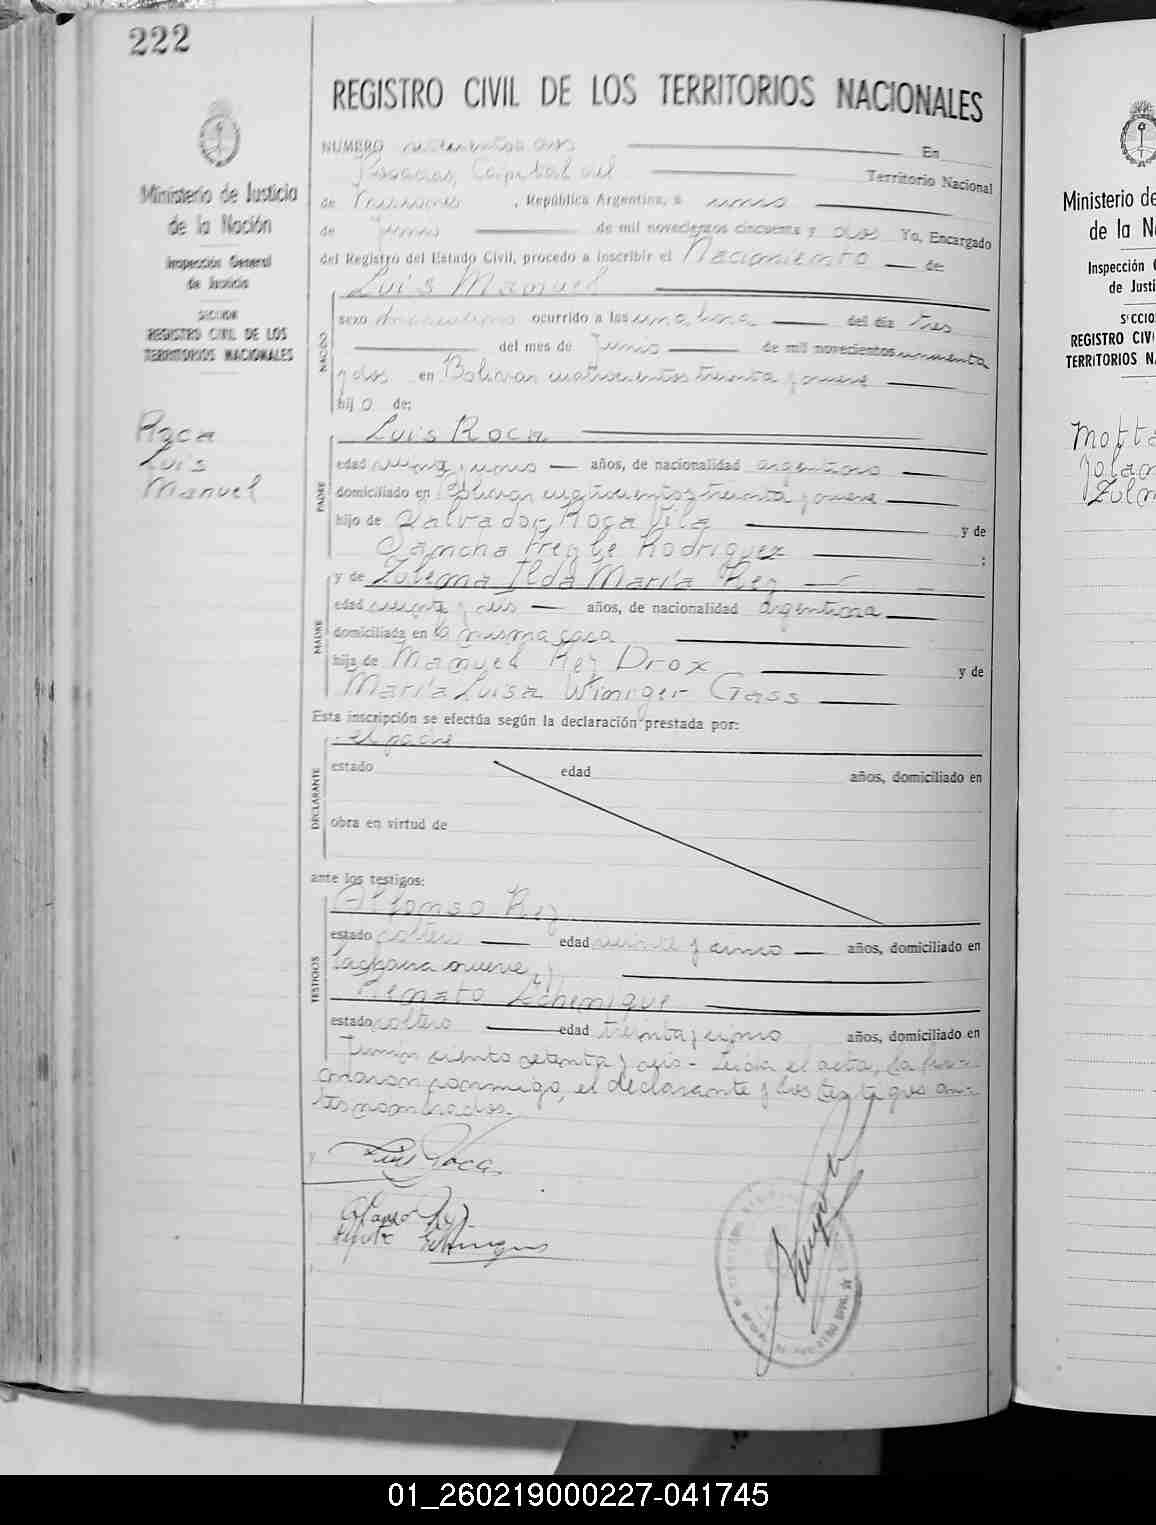 222
REGISTRO CIVIL DE LOS TERRITORIOS NACIONALES
Ministerio de Justicia
de la Nación
Inspección General
de Justicia
SECCION
REGISTRO CIVIL DE LOS
TERRITORIOS NACIONALES
Roca
Luis
Manuel
NUMERO En
Posadas, Capital del Territorio Nacional
de Misiones, República Argentina, a
de Junio de mil novecientos cincuenta y dos Yo, Encargado
del Registro del Estado Civil, procedo a inscribir el Nacimiento de:
Luis Manuel
NACIDO
sexo masculino ocurrido a las una hora del día tres
del mes de Junio de mil novecientos cincuenta
y dos en Bolivar cuatrocientos treinta y nueve
hij o de:
PADRE
Luis Roca
edad años, de nacionalidad argentino
domiciliado en Bolivar cuatrocientos treinta y nueve
hijo de Salvador Roca Vila y de
Sancha Freyle Rodriguez ;
MADRE
y de Zulema Ilda María Rey
edad años, de nacionalidad argentina
domiciliada en la misma casa
hija de Manuel Rey Drox y de
María Luisa Winiger Gass
Esta inscripción se efectúa según la declaración prestada por:
DECLARANTE
el padre
estado edad años, domiciliado en
obra en virtud de
ante los testigos:
TESTIGOS
Alfonso Rey
estado soltero edad años, domiciliado en
nueve, y
Renato Echenique
estado soltero edad treinta y cinco años, domiciliado en
Junín ciento setenta y seis - Leida el acta, la
conmigo, el declarante y los testigos an-
tes nombrados.
Luis Roca
Alfonso Rey
Ministerio de
de la N
Inspección
de Justi
SECCIO
REGISTRO CIV
TERRITORIOS N
Motta
Yolan
Zulm
01_260219000227-041745